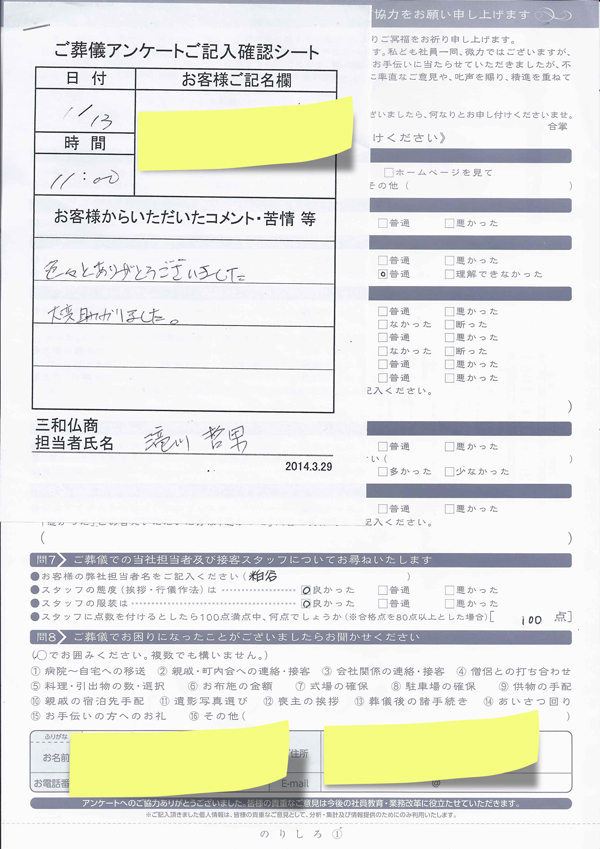 ご協力をお願い申し上げます
ご葬儀アンケートご記入確認シート
日 付
お客様ご記名欄
11/13
時 間
11:00
お客様からいただいたコメント・苦情 等
色々とありがとうございました
大変助かりました。
三和仏商
担当者氏名 滝川 哲男
2014.3.29
りご冥福をお祈り申し上げます。
す。私ども社員一同、微力ではございますが、
お手伝いに当たらせていただきましたが、不
に率直なご意見や、叱声を賜り、精進を重ねて
ざいましたら、何なりとお申し付けくださいませ。
合掌
けください》
□ホームページを見て
その他( )
□普通 □悪かった
□普通 □悪かった
□普通 □理解できなかった
□普通 □悪かった
□なかった □断った
□普通 □悪かった
□なかった □断った
□普通 □悪かった
□普通 □悪かった
記入ください。
)
□普通 □悪かった
さい( )
□多かった □少なかった
□普通 □悪かった
記入ください。
( )
問7 ご葬儀での当社担当者及び接客スタッフについてお尋ねいたします
●お客様の弊社担当者名をご記入ください( 粕谷 )
●スタッフの態度(挨拶・行儀作法)は □良かった □普通 □悪かった
●スタッフの服装は □良かった □普通 □悪かった
●スタッフに点数を付けるとしたら100点満点中、何点でしょうか(※合格点を80点以上とした場合)[ 100 点]
問8 ご葬儀でお困りになったことがございましたらお聞かせください
(○でお囲みください。複数でも構いません。)
① 病院~自宅への移送 ② 親戚・町内会への連絡・接客 ③ 会社関係の連絡・接客 ④ 僧侶との打ち合わせ
⑤ 料理・引出物の数・選択 ⑥ お布施の金額 ⑦ 式場の確保 ⑧ 駐車場の確保 ⑨ 供物の手配
⑩ 親戚の宿泊先手配 ⑪ 遺影写真選び ⑫ 喪主の挨拶 ⑬ 葬儀後の諸手続き ⑭ あいさつ回り
⑮ お手伝いの方へのお礼 ⑯ その他( )
ふりがな
お名前
ご住所
お電話番
E-mail @
アンケートへのご協力ありがとうございました。皆様の貴重なご意見は今後の社員教育・業務改革に役立たせていただきます。
※ご記入頂きました個人情報は、皆様の貴重なご意見として、分析・集計及び情報提供のためにのみ利用いたします。
のりしろ①